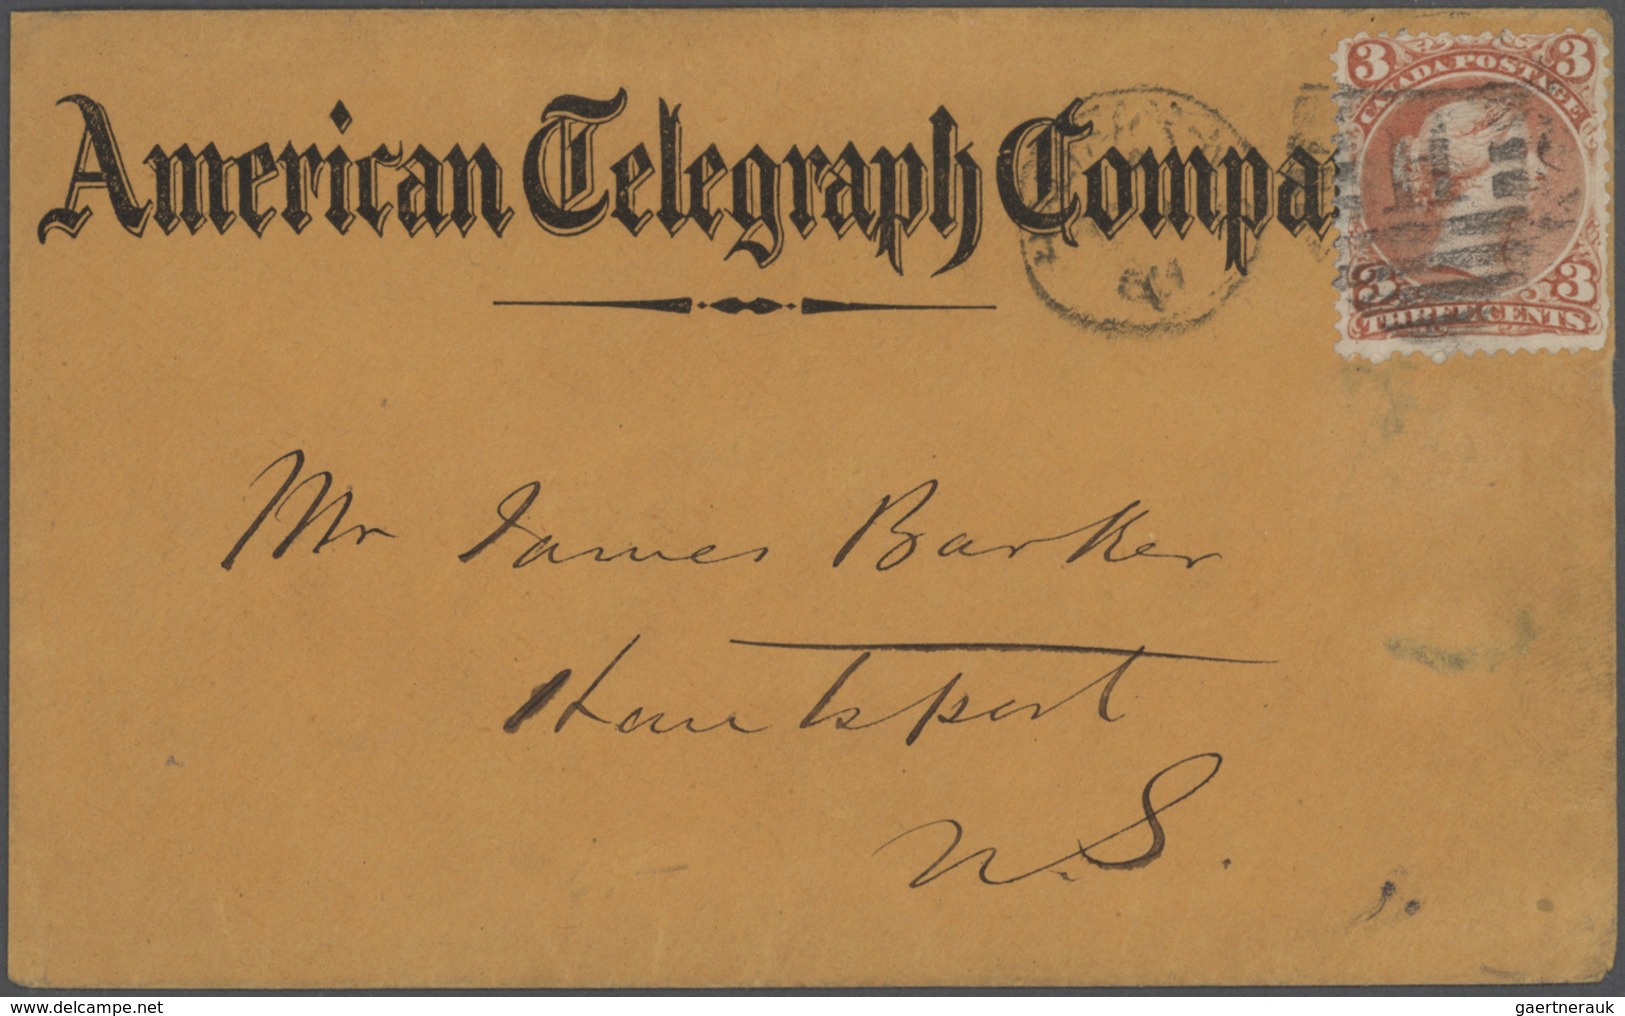 American Telegraph Compa
3 CANADA POSTAGE 3
3 3
THREE CENTS
Mr James Barker
Hantsport
N.S.
www.delcampe.net
gaertnerauk